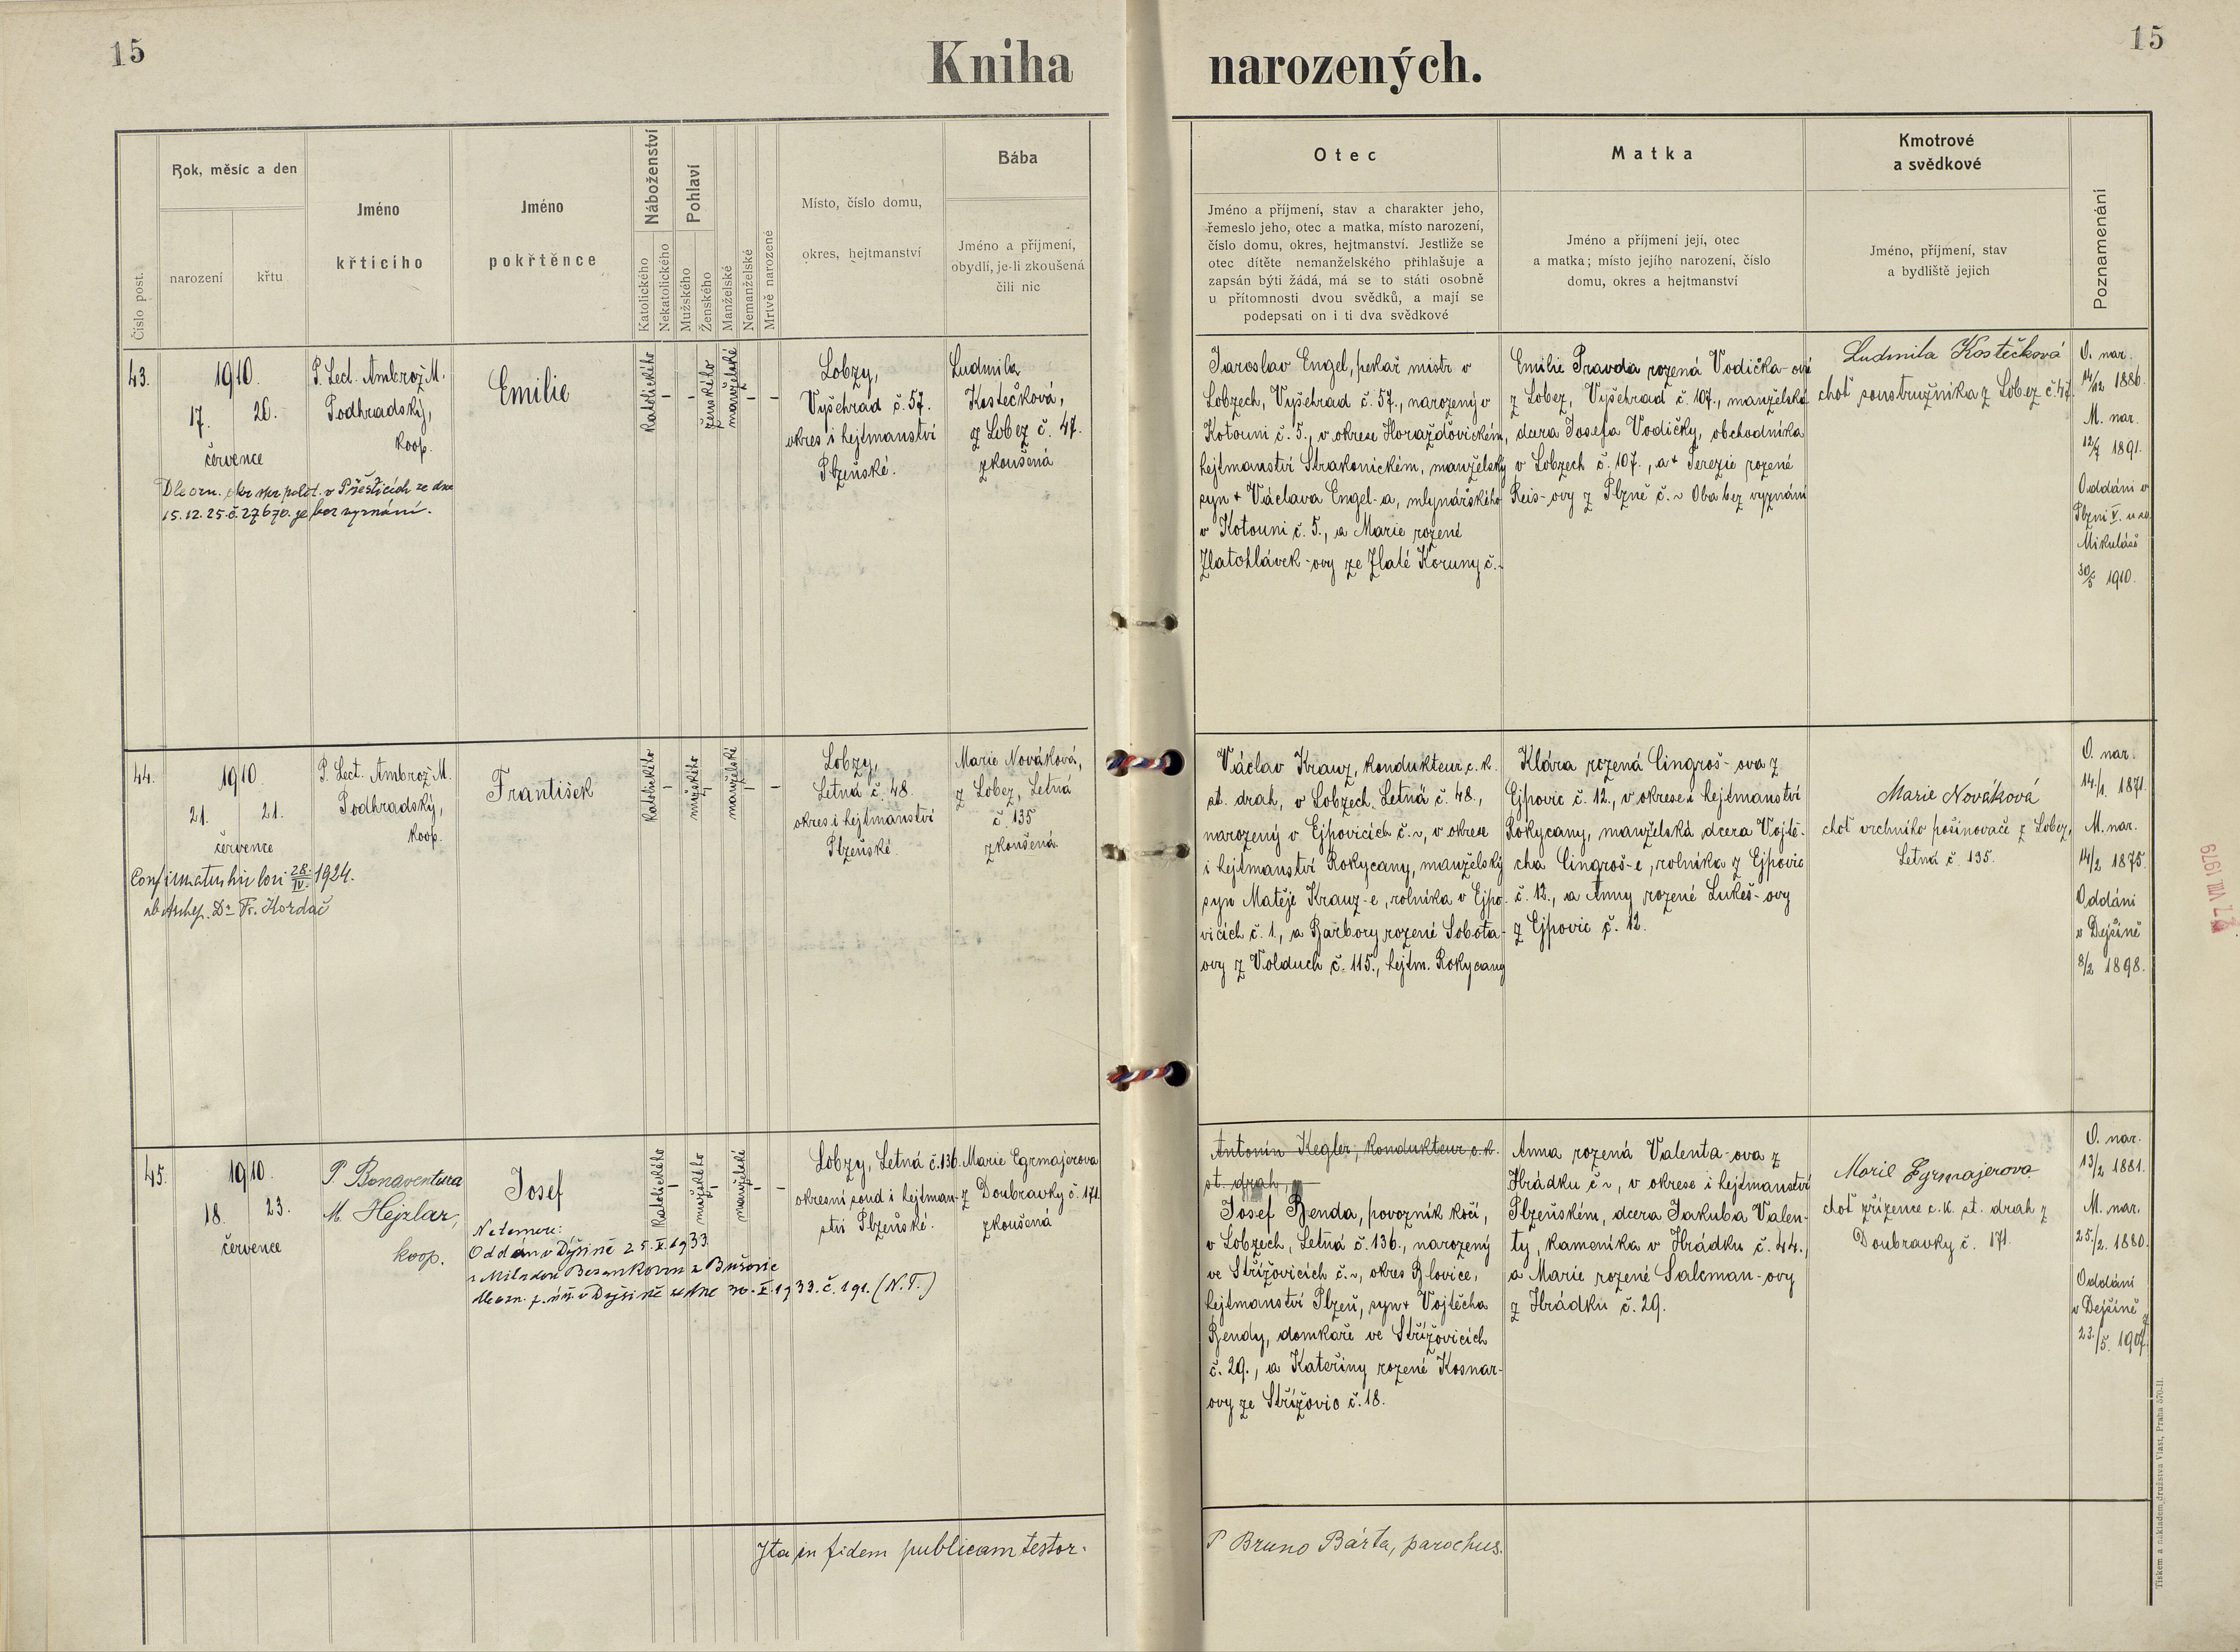 15
Kniha narozených.
15
Číslo post.
Rok, měsíc a den
narození
křtu
Jméno
křtícího
Jméno
pokřtěnce
Náboženství
Katolického
Nekatolického
Pohlaví
Mužského
Ženského
Manželské
Nemanželské
Mrtvě narozené
Místo, číslo domu,
okres, hejtmanství
Bába
Jméno a příjmení,
obydlí, je-li zkoušená
čili nic
Otec
Jméno a příjmení, stav a charakter jeho,
řemeslo jeho, otec a matka, místo narození,
číslo domu, okres, hejtmanství. Jestliže se
otec dítěte nemanželského přihlašuje a
zapsán býti žádá, má se to státi osobně
u přítomnosti dvou svědků, a mají se
podepsati on i ti dva svědkové
Matka
Jméno a příjmení její, otec
a matka; místo jejího narození, číslo
domu, okres a hejtmanství
Kmotrové
a svědkové
Jméno, příjmení, stav
a bydliště jejich
Poznamenání
43.
1910.
17. 26.
července
P. Lect. Ambrož M.
Podhradský,
koop.
Emilie
Katolického
-
-
ženského
manželské
-
-
Lobzy,
Vyšehrad č. 57.
okres i hejtmanství
Plzeňské.
Ludmila
Kostečková,
z Lobez č. 47.
zkoušená
Dle ozn. okr. spr. polit. v Přešticích ze dne
15.12.25. č. 27670. je bez vyznání.
Jaroslav Engel, pekař. mistr v
Lobzech, Vyšehrad č. 57., narozený v
Kotouni č. 5., v okrese Horažďovickém,
hejtmanství Strakonickém, manželský
syn + Václava Engel-a, mlynářského
v Kotouni č. 5., a Marie rozené
Zlatohlávek-ovy ze Zlaté Koruny č. -
Emilie Pravda rozená Vodička-ová
z Lobez, Vyšehrad č. 107., manželská
dcera Josefa Vodičky, obchodníka
v Lobzech č. 107., a + Terezie rozené
Reis-ovy z Plzně č. ~ Oba bez vyznání
Ludmila Kostečková
choť soustružníka z Lobez č. 47.
O. nar.
14/12 1886.
M. nar.
12/7 1891.
Oddáni v
Plzni V. u sv.
Mikuláše
30/5 1910.
44.
1910.
21. 21.
července
P. Lect. Ambrož M.
Podhradský,
koop.
František
Katolického
-
mužského
-
manželské
-
-
Lobzy,
Letná č. 48.
okres i hejtmanství
Plzeňské.
Marie Nováková,
z Lobez, Letná
č. 135
zkoušená.
Confirmatus hic loci 28./IV. 1924.
ab Archep. Dr Fr. Kordač
Václav Krauz, kondukteur c. k.
st. drah, v Lobzech, Letná č. 48.,
narozený v Ejpovicích č. ~, v okrese
i hejtmanství Rokycany, manželský
syn Matěje Krauz-e, rolníka v Ejpo-
vicích č. 1., a Barbory rozené Sobota-
ovy z Volduch č. 115., hejtm. Rokycany
Klára rozená Cingroš-ova z
Ejpovic č. 12., v okrese i hejtmanství
Rokycany, manželská dcera Vojtě-
cha Cingroš-e, rolníka z Ejpovic
č. 12., a Anny rozené Lukeš-ovy
z Ejpovic č. 12.
Marie Nováková
choť vrchního pošinovače z Lobez,
Letná č. 135.
O. nar.
14/1. 1871.
M. nar.
14/2 1875.
Oddáni
v Dejšině
8/2 1898.
7. VIII. 1979
45.
1910.
18. 23.
července
P. Bonaventura
M. Hejzlar,
koop.
Josef
Katolického
-
mužského
-
manželské
-
-
Lobzy, Letná č. 136.
okresní soud i hejtman-
ství Plzeňské.
Marie Egrmajerova
z Doubravky č. 171.
zkoušená
Ne temere:
Oddán v Dýšině 25. X. 1933.
ze dne 30. X. 1933. č. 191. (N.T.)
Antonín Kegler, kondukteur c. k.
st. drah,
Josef Benda, povozník kočí,
v Lobzech, Letná č. 136., narozený
ve Střížovicích č. ~, okres Blovice,
hejtmanství Plzeň, syn + Vojtěcha
Bendy, domkaře ve Střížovicích
č. 29., a Kateřiny rozené Kosnar-
ovy ze Střížovic č. 18.
Anna rozená Valenta-ova z
Hrádku č ~, v okrese i hejtmanství
Plzeňském, dcera Jakuba Valen-
ty, kameníka v Hrádku č. 44.,
a Marie rozené Salcman-ovy
z Hrádku č. 29.
Marie Egrmajerova
choť zřízence c. k. st. drah z
Doubravky č. 171.
O. nar.
13/2 1881.
M. nar.
25./2. 1880.
Oddáni
v Dejšině
23./5. 1907.
Ita in fidem publicam testor.
P Bruno Bárta, parochus.
Tiskem a nakladem družstva Vlast, Praha 570-II.